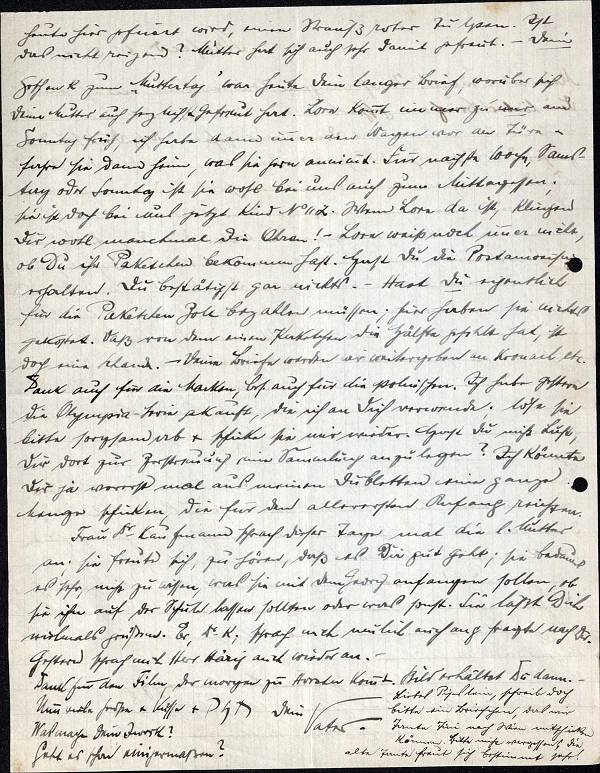 heute hier gefeiert wird, einen Strauß roter Tulpen. Ist
das nicht reizend? Mutter hat sich auch sehr damit gefreut. – Dein
zum „Muttertag" war heute Dein langer Brief, worüber sich
Deine Mutter auch gefreut hat. Lore kommt immer zu mir am
Sonntag früh, ich habe dann immer den Wagen vor der Türe &
fahre sie dann heim, was sie gern annimmt. Für nächste Woche, Sams-
tag oder Sonntag ist sie wohl bei uns auch zum Mittagessen.
Sie ist doch bei uns jetzt Kind No 2. Wenn Lore da ist, klingen
Dir wohl manchmal die Ohren! – Lore weiß noch immer nicht,
ob Du ihr Paketchen bekommen hast. Hast Du die Postanweisung
erhalten. Du bestätigst gar nichts. – Hast Du eigentlich
für die Paketchen Zoll bezahlen müssen, hier haben sie nichts
gekostet. Daß von dem einen Paketchen die Hälfte gefehlt hat, ist
doch eine Schande. – Deine Briefe werden weitergegeben an etc.
Dank auch für die Marken, bes. auch für die polnischen. Ich habe gestern
die Olympia-Serie gekauft, die ich an Dich verwende. Löse sie
bitte sorgsam ab & schicke sie mir wieder. Hast Du nicht Lust,
Dir dort zur Zerstreuung eine Sammlung anzulegen? Ich könnte
Dir ja vorerst mal aus meinen Dubletten eine ganze
Menge schicken, die für den allerersten Anfang reichten.
Frau Dr. Kaufmann sprach dieser Tage mal die l. Mutter
an. Sie freute sich, zu hören, daß es Dir gut geht; sie bedauert
es sehr, nicht zu wissen, was sie mit dem Georg anfangen sollen, ob
sie ihn auf der Schule lassen sollten oder was sonst. Sie läßt Dich
vielmals grüßen. Er, Dr. K., sprach mich neulich auch an & fragte nach Dir.
Gestern sprach mich Herr auch wieder an. –
Dank für den Film, der morgen zu kommt. Bild erhältst Du dann. –
Nun viele Grüße & Küsse Dein Vater.
Was macht Dein Iwrith?
Geht es schon einigermaßen?
schreib doch
bitte ein Briefchen, das wir
Tante nach Wien mitschicken
können. Bitte nicht vergessen, die
alte Tante freut sich bestimmt sehr.